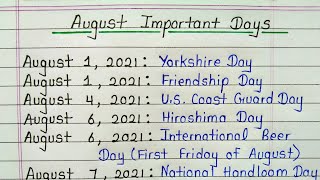 August Important Days
August 1, 2021: Yorkshire Day
August 1, 2021: Friendship Day
August 4, 2021: U.S. Coast Guard Day
August 6, 2021: Hiroshima Day
August 6, 2021: International Beer
Day (First Friday of August)
August 7, 2021: National Handloom Day